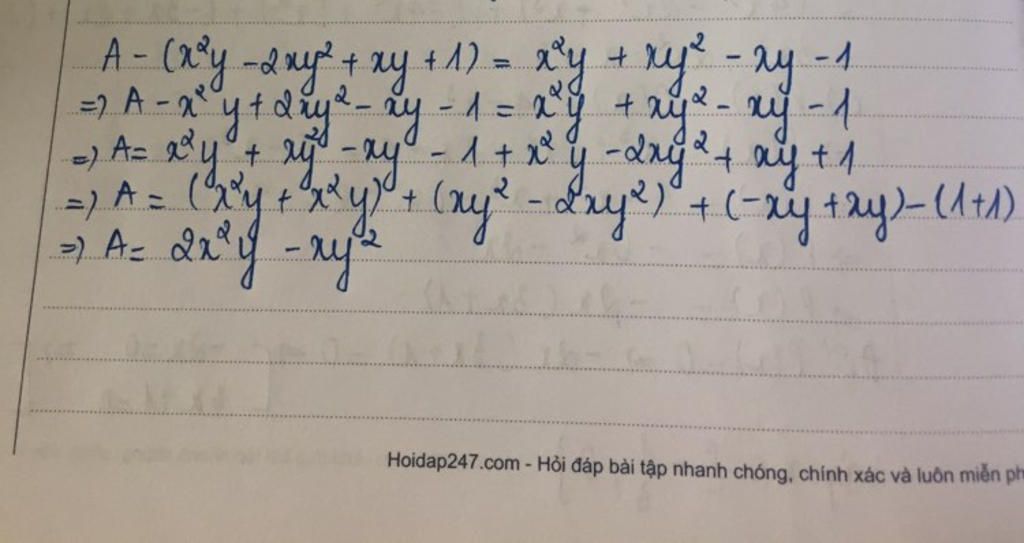 A - (x²y - 2xy² + xy + 1) = x²y + xy² - xy - 1
=> A - x²y + 2xy² - xy - 1 = x²y + xy² - xy - 1
=> A = x²y + xy² - xy - 1 + x²y - 2xy² + xy + 1
=> A = (x²y + x²y) + (xy² - 2xy²) + (-xy + xy) - (1+1)
=> A = 2x²y - xy²
Hoidap247.com - Hỏi đáp bài tập nhanh chóng, chính xác và luôn miễn ph